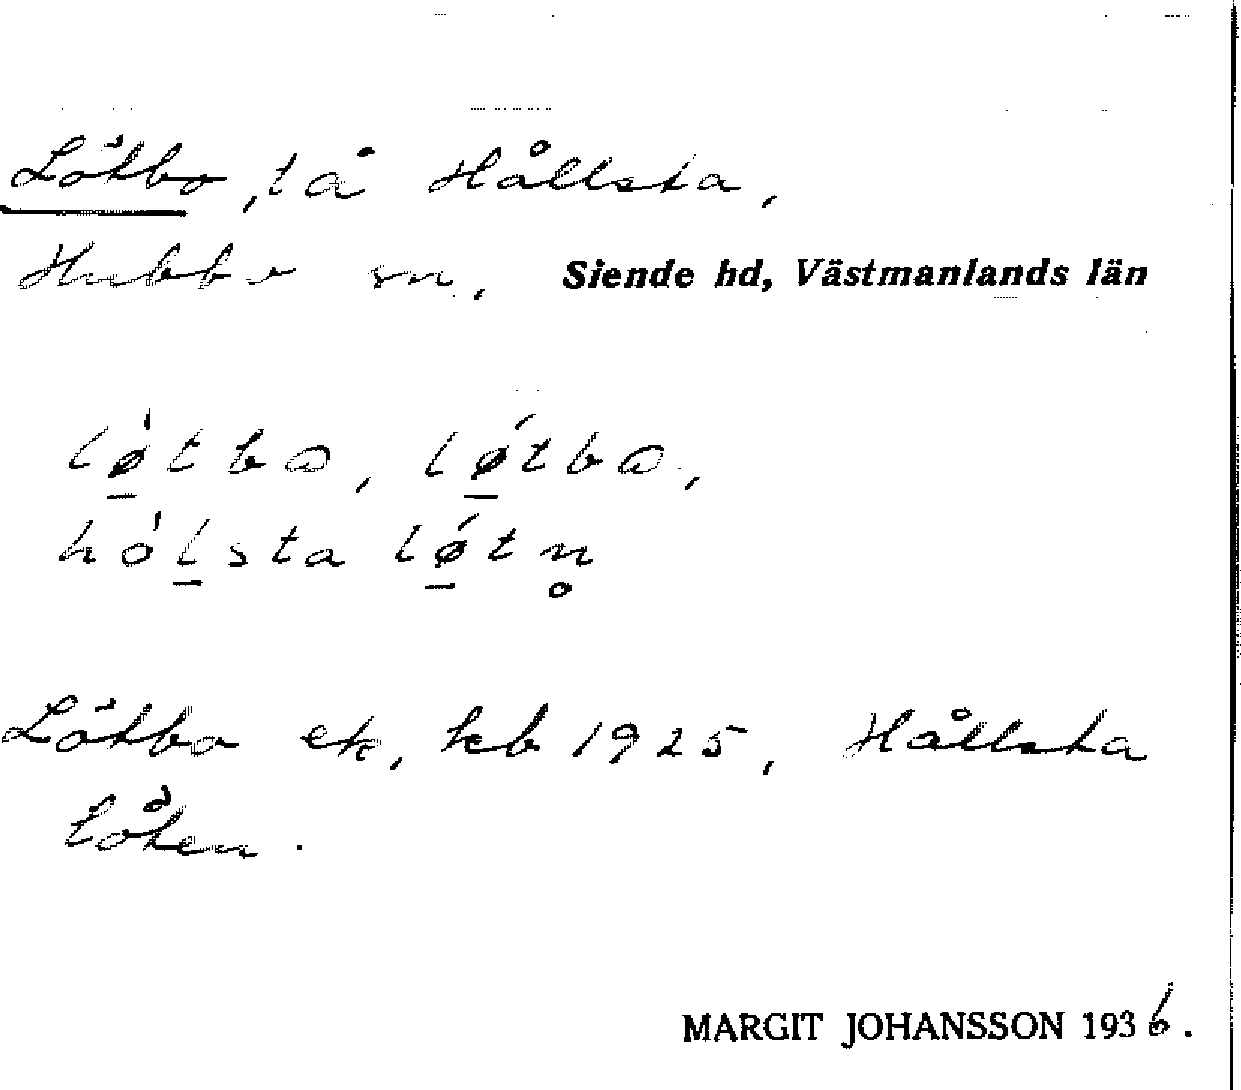 Lötbo, tå Hållsta,
Hubbo sn, Siende hd, Västmanlands län
lø̠̀tbo, lǿ̠tbo,
hòl̠sta lǿ̠tn̥
Lötbo ek, kb 1925, Hållsta
löten.
MARGIT JOHANSSON 1936.